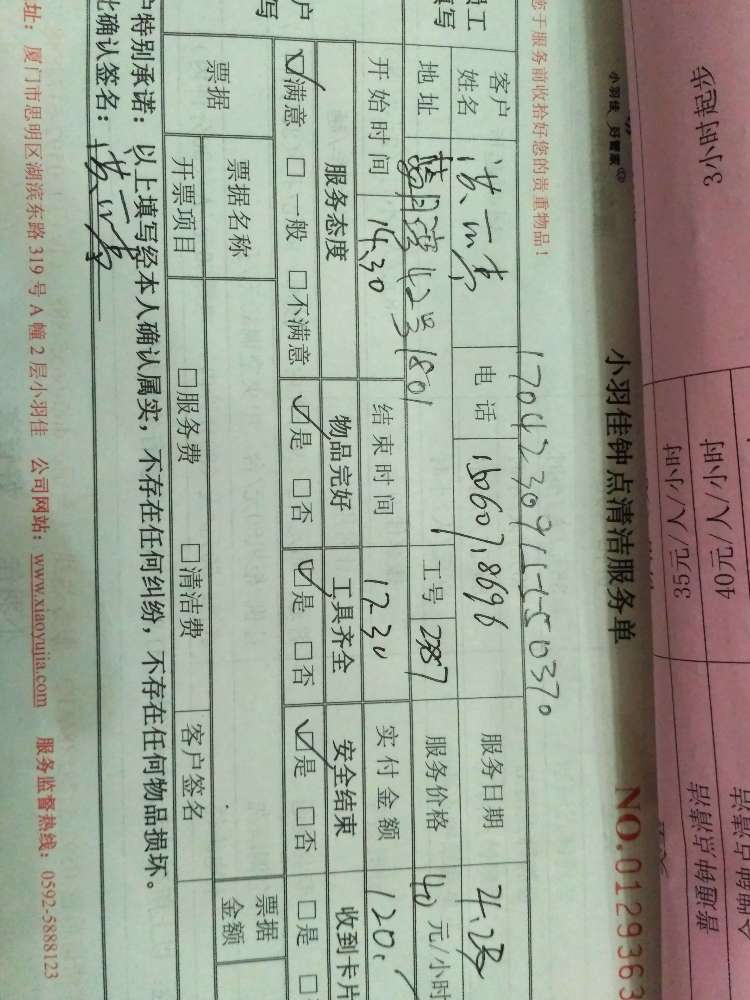 小羽佳 好管家
小羽佳钟点清洁服务单
NO.0129363
您于服务前收拾好您的贵重物品!
员工
填写
客户
姓名
电话 150607,8696
服务日期 4.23
地址 42号1801
工号 2787
服务价格 40 元/小时
开始时间 14.30
结束时间 17.30
实付金额 120.
户
写
服务态度 物品完好 工具齐全 安全结束 收到卡片
☑满意 □一般 □不满意 ☑是 □否 ☑是 □否 ☑是 □否 □是
票据
票据名称
票据
金额
开票项目 □服务费 □清洁费 客户签名
户特别承诺:以上填写经本人确认属实,不存在任何纠纷,不存在任何物品损坏。
比确认签名:
址:厦门市思明区湖滨东路 319 号 A 幢 2 层小羽佳 公司网站:www.xiaoyujia.com 服务监督热线:0592-5888123
3小时起步
40元/人/小时
35元/人/小时
普通钟点清洁